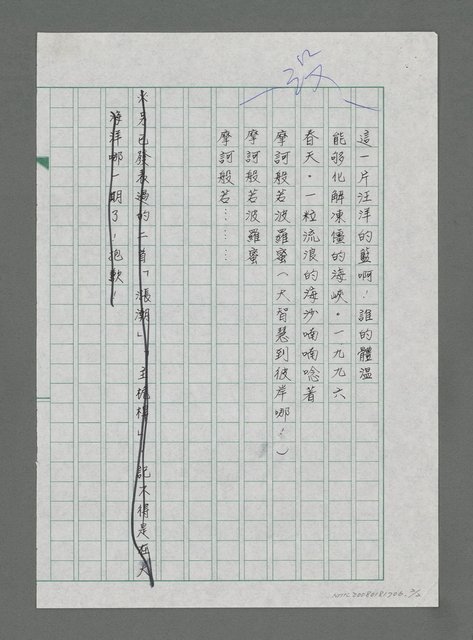 這一片汪洋的藍啊！誰的體溫
能够化解凍僵的海峽。一九九六
春天。一粒流浪的海沙喃喃唸著
摩訶般若波羅蜜（大智慧到彼岸哪！）
摩訶般若波羅蜜
摩訶般若………
另已發表過的二首「漲潮」、「主桅桿」，記不得是在
海洋哪一期了！抱歉！